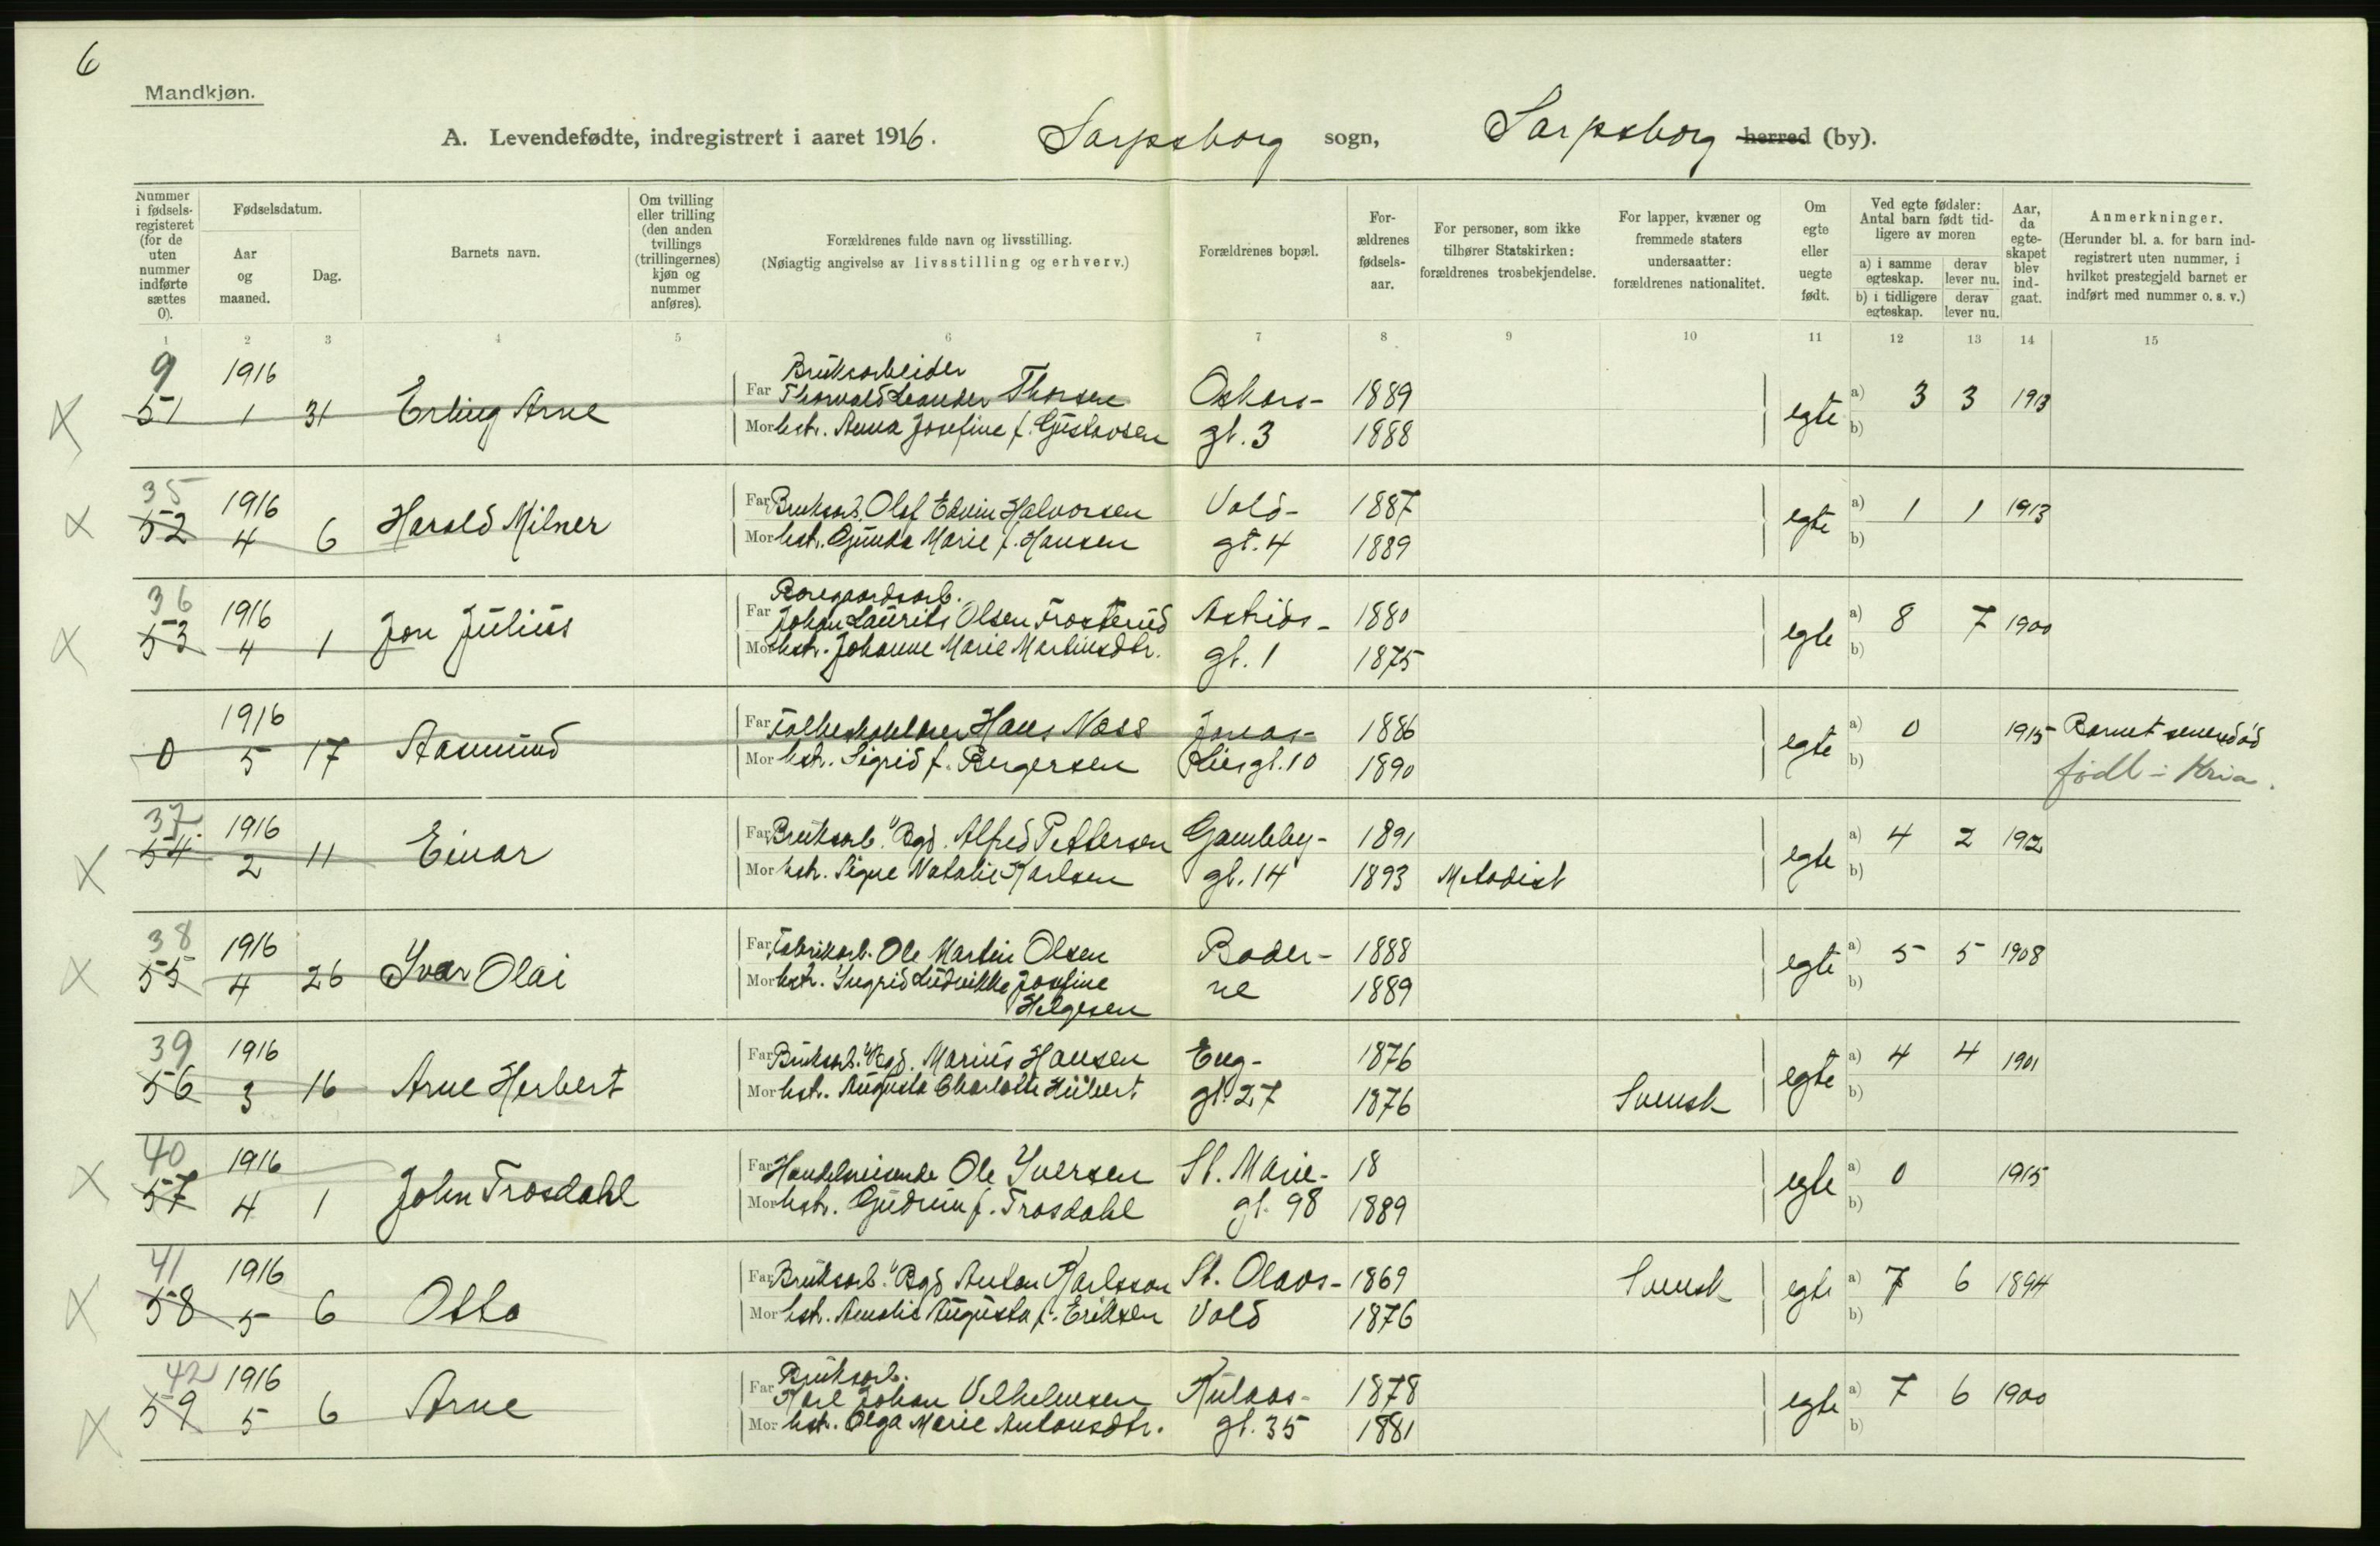 6
Mandkjøn.
A. Levendefødte, indregistrert i aaret 1916. Sarpsborg sogn, Sarpsborg herred (by).
Nummer i fødselsregisteret (for de uten nummer indførte sættes 0).
Fødselsdatum.
Aar og maaned.
Dag.
Barnets navn.
Om tvilling eller trilling (den anden tvillings (trillingernes) kjøn og nummer anføres).
Forældrenes fulde navn og livsstilling.
(Nøiagtig angivelse av livsstilling og erhverv.)
Forældrenes bopæl.
Forældrenes fødselsaar.
For personer, som ikke tilhører Statskirken: forældrenes trosbekjendelse.
For lapper, kvæner og fremmede staters undersaatter: forældrenes nationalitet.
Om egte eller uegte født.
Ved egte fødsler: Antal barn født tidligere av moren
a) i samme egteskap. derav lever nu.
b) i tidligere egteskap. derav lever nu.
Aar, da egteskapet blev indgaat.
Anmerkninger.
(Herunder bl. a. for barn indregistrert uten nummer, i hvilket prestegjeld barnet er indført med nummer o. s. v.)
1 2 3 4 5 6 7 8 9 10 11 12 13 14 15
9 1916 Bruksarbeider
Far Thorvald Leander Thorsen Oskars- 1889 a) 3 3 1913
51 1 31 Erling Arne egte
Mor hstr. Anna Josefine f. Gustavsen gt. 3 1888 b)
35 1916 Far Bruksarb. Olof Edvin Halvorsen Vold- 1887 a) 1 1 1913
52 4 6 Harald Milner egte
Mor hstr. Gunda Marie f. Hansen gt. 4 1889 b)
36 1916 Boregaardsarb.
Far Johan Laurits Olsen Frosterud Astrids- 1880 a) 8 7 1900
53 4 1 Jon Julius egte
Mor hstr. Johanne Marie Martinsdtr. gt. 1 1875 b)
1916 Far Hans Næss Jonas- 1886 a) 0 1915 Barnet
0 5 17 Aasmund egte
Mor hstr. Sigrid f. Bergersen Liesgt. 10 1890 b) født i Kria.
37 1916 Far Bruksarb. Bgd. Alfred Pettersen Gamleby- 1891 a) 4 2 1912
54 2 11 Einar egte
Mor hstr. Signe Natalie Karlsen gt. 14 1893 Metodist b)
38 1916 Far Fabrikarb. Ole Martin Olsen Bader- 1888 a) 5 5 1908
55 4 26 Ivar Olai egte
Mor hstr. Ingrid Ludvikke Josefine ne 1889 b)
Helgesen
39 1916 Far Bruksarb. Bgd. Marius Hansen Eng- 1876 a) 4 4 1901
56 3 16 Arne Herbert egte
Mor hstr. Augusta Charlotte Hübert gt. 27 1876 Svensk b)
40 1916 Far Handelsreisende Ole Iversen St. Marie- 18 a) 0 1915
57 4 1 John Trosdahl egte
Mor hstr. Gudrun f. Trosdahl gt. 98 1889 b)
41 1916 Far Bruksarb. Bgd Anton Karlsson St. Olavs- 1869 Svensk a) 7 6 1894
58 5 6 Otto egte
Mor hstr. Amalie Augusta f. Eriksen Vold 1876 b)
42 1916 Bruksarb.
Far Karl Johan Vilhelmsen Kulaas- 1878 a) 7 6 1900
59 5 6 Arne egte
Mor hstr. Olga Marie Antonsdtr. gt. 35 1881 b)